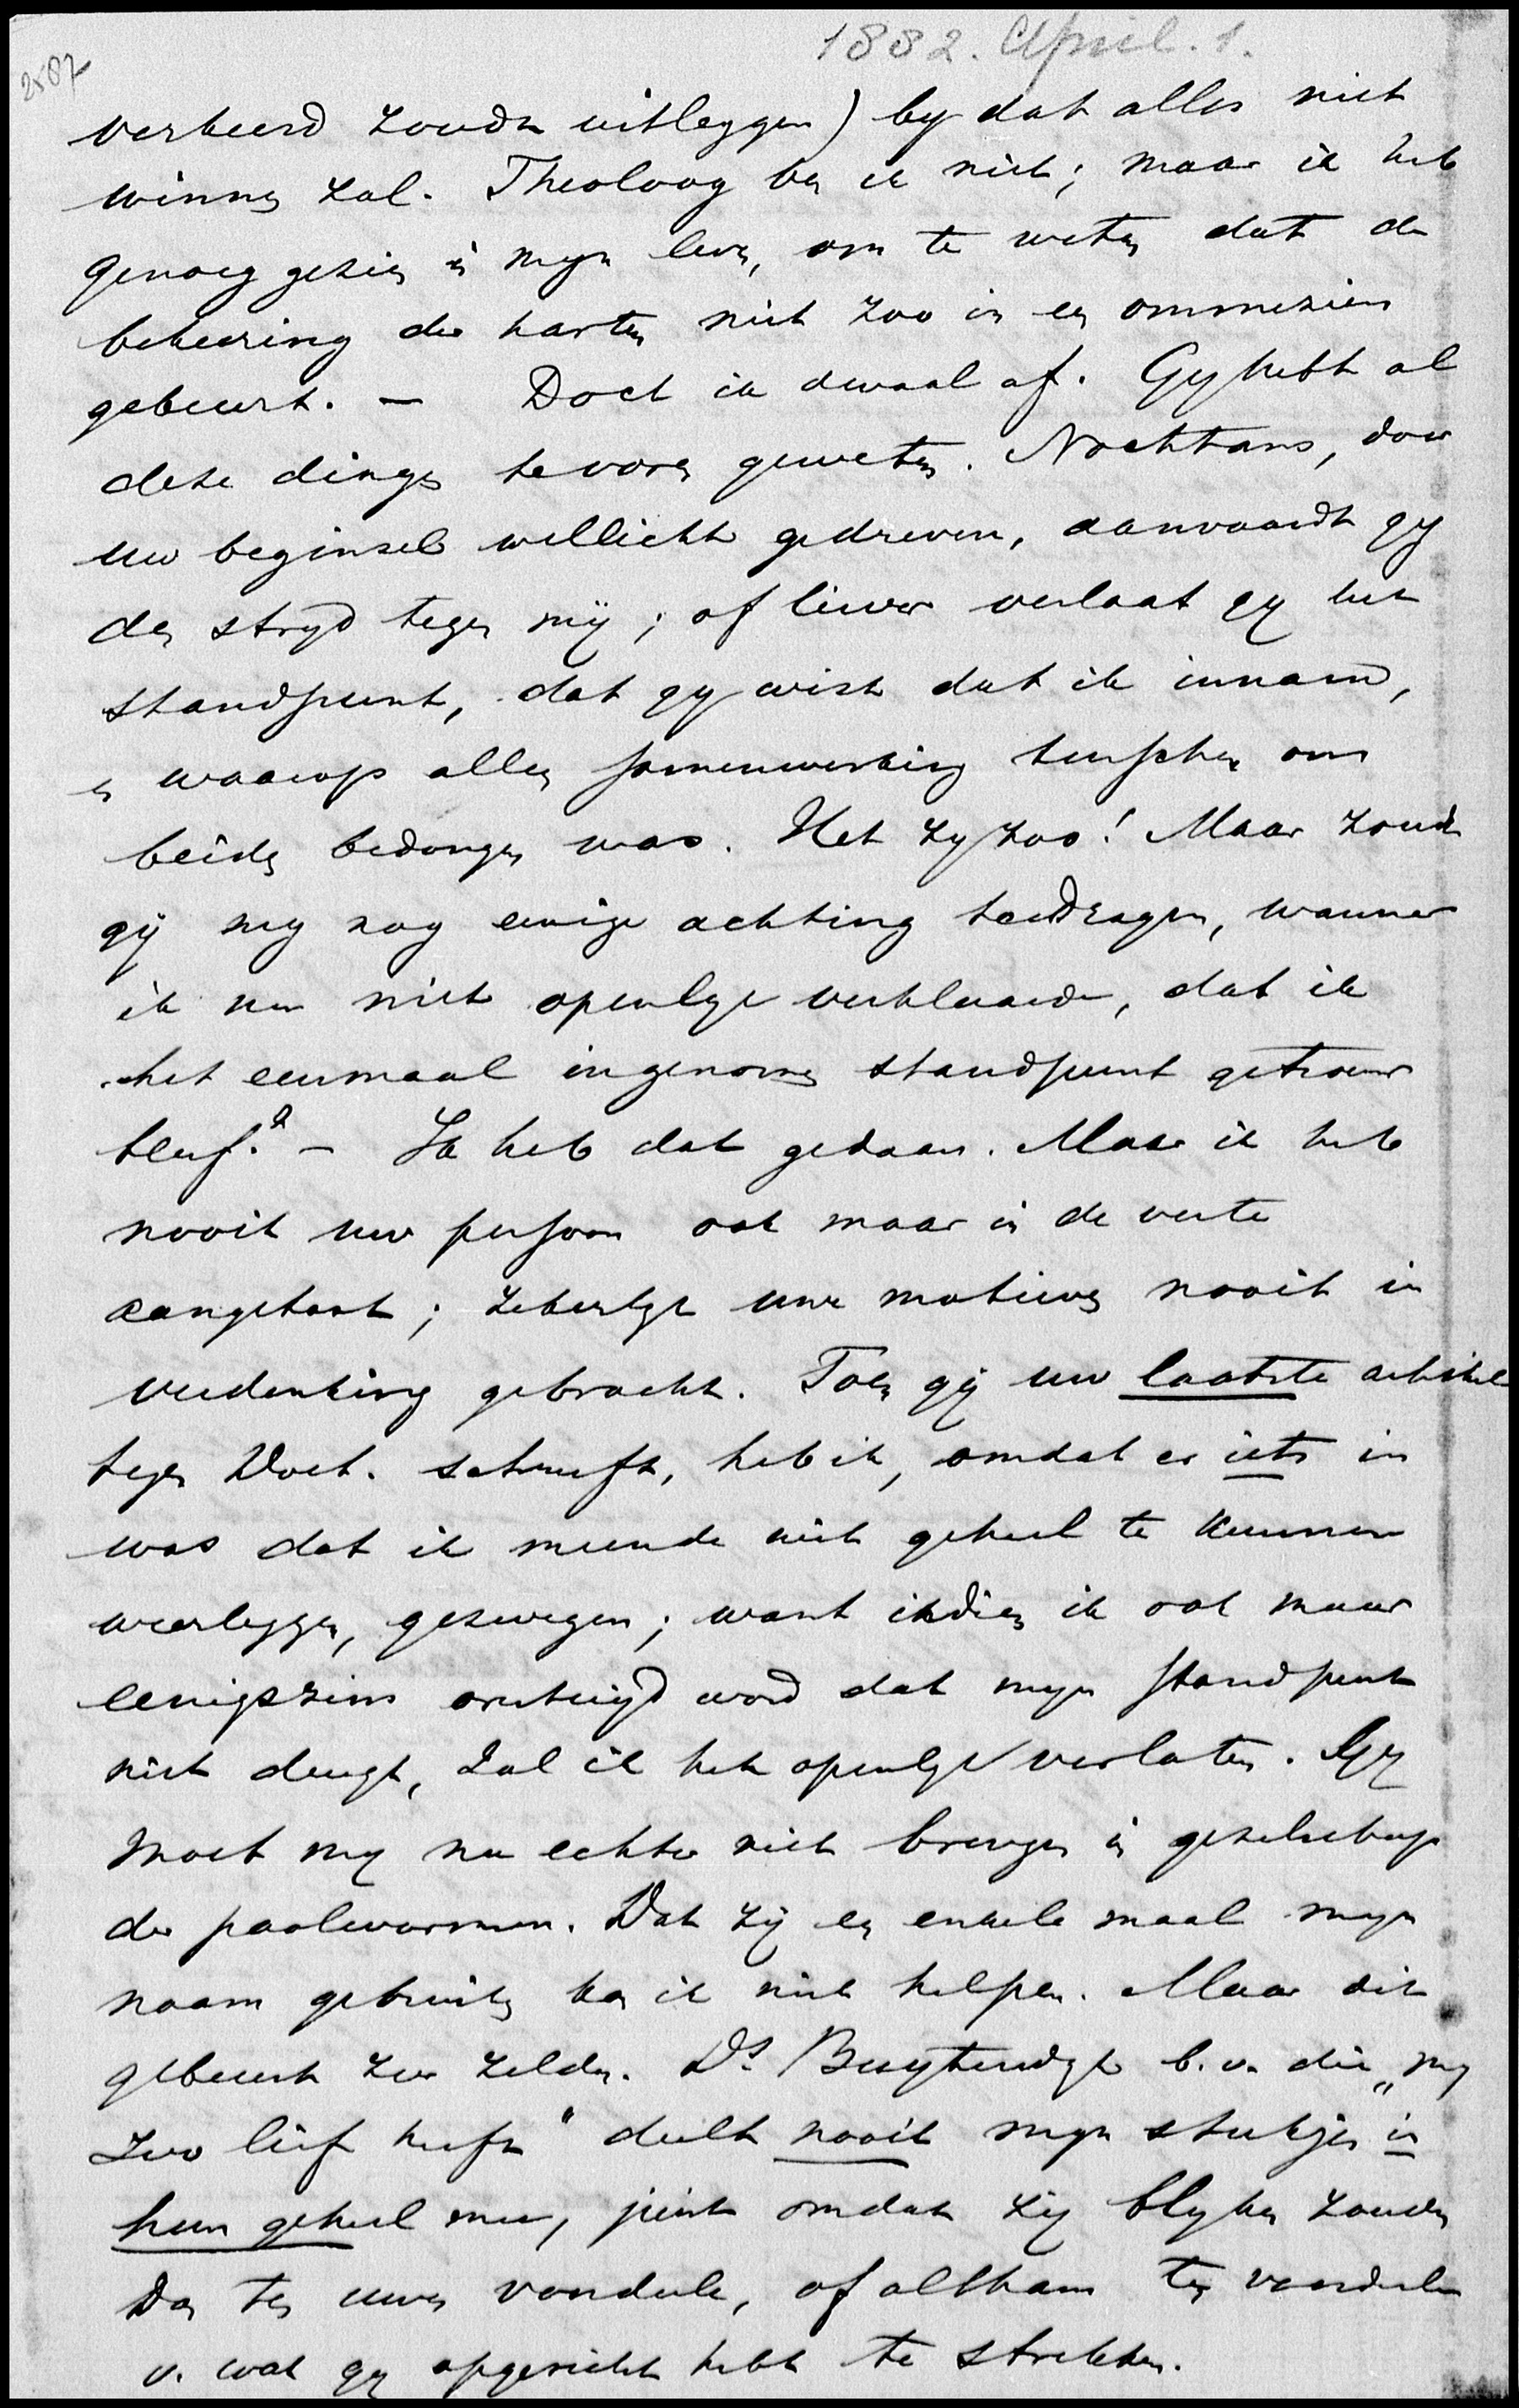 1882. April. 1.
2587
verkeerd zoudt uitleggen) by dat alles niet
winnen zal. Theoloog ben ik niet; maar ik heb
genoeg gezien in myn leven, om te weten dat de
bekeering der harten niet zoo in een ommezien
gebeurt. — Doch ik dwaal af. Gy hebt al
deze dingen tevoren geweten. Nochtans, door
uw beginsel wellicht gedreven, aanvaardt gy
den stryd tegen mij; of liever verlaat gy het
standpunt, dat gy wist dat ik innam,
en waarop alle samenwerking tusschen ons
beiden bedongen was. Het zy zoo! Maar zoudt
gij my nog eenige achting toedragen, wanneer
ik nu niet openlyk verklaarde, dat ik
het eenmaal ingenomen standpunt getrouw
bleef? — Ik heb dat gedaan. Maar ik heb
nooit uw persoon ook maar in de verte
aangetast; zekerlyk uwe motieven nooit in
verdenking gebracht. Toen gij uw laatste artikel
tegen Doct. schreeft, heb ik, omdat er iets in
was dat ik meende niet geheel te kunnen
weerleggen, gezwegen; want indien ik ook maar
eenigszins overtuigd word dat myn standpunt
niet deugt, zal ik het openlyk verlaten. Gy
moet my nu echter niet brengen in gezelschap
der paalwormen. Dat zij een enkele maal myn
naam gebruiken kan ik niet helpen. Maar dit
gebeurt zeer zelden. Ds Buytendyk b.v. die „my
zoo lief heeft" deelt nooit myn stukjes in
hun geheel mee, juist omdat zij blyken zouden
dan ten uwen voordeele, of althans ten voordeele
v. wat gy opgericht hebt te strekken.